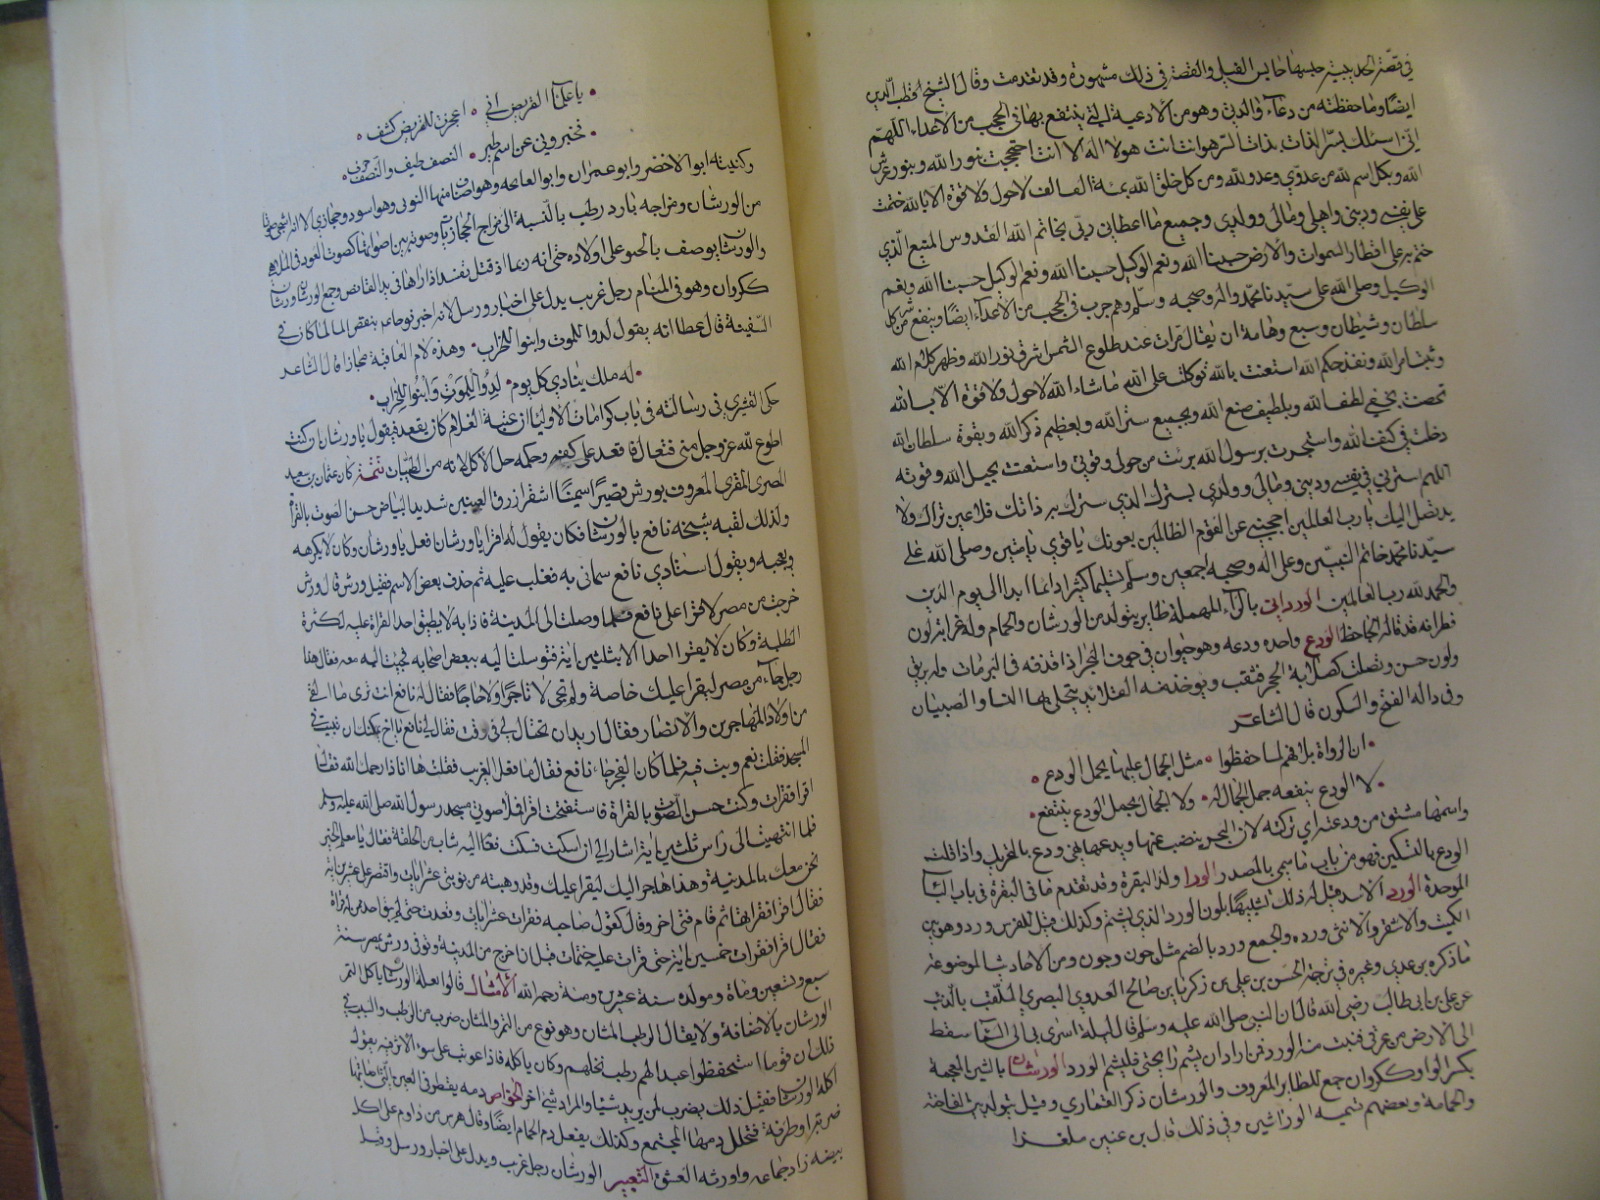 في قصة الحديبية حبسها حابس الفيل والقصة في ذلك مشهورة وقد تقدمت وقال الشيخ قطب الدين
ايضا ومما حفظته من دعاء والدتي وهو من الادعية التي ينتفع بها في الحجب من الاعداء اللهم
اني اسئلك بسر الذات بذات السر هو انت انت هو لا اله الا انت احتجبت بنور الله وبنور عرش
الله وبكل اسم لله من عدوي وعدو لله ومن كل خلق الله بمائة الف الف لا حول ولا قوة الا بالله ختمت
على نفسي وديني واهلي ومالي وولدي وجميع ما اعطاني ربي بخاتم الله القدوس المنيع الذي
ختم به على اقطار السموات والارض حسبنا الله ونعم الوكيل حسبنا الله ونعم الوكيل حسبنا الله ونعم
الوكيل وصلى الله على سيدنا محمد واله وصحبه وسلم ومما جرب في الحجب من الاعداء ايضا وينفع من شر كل
سلطان وشيطان وسبع وهامة ان يقال مرات عند طلوع الشمس اشرق نور الله وظهر كلام الله
وثبت امر الله ونفذ حكم الله استعنت بالله توكلت على الله ما شاء الله لا حول ولا قوة الا بالله
تحصنت بخفي لطف الله وبلطيف صنع الله وبجميع ستر الله وبعظيم ذكر الله وبقوة سلطان الله
دخلت في كنف الله واستجرت برسول الله برئت من حولي وقوتي واستعنت بحول الله وقوته
اللهم استرني في نفسي وديني ومالي وولدي بسترك الذي سترت به ذاتك فلا عين تراك ولا
يد تصل اليك يا رب العالمين احجبني عن القوم الظالمين بعونك يا قوي يا متين وصلى الله على
سيدنا محمد خاتم النبيين وعلى اله وصحبه اجمعين وسلم تسليما كثيرا دائما ابدا الى يوم الدين
والحمد لله رب العالمين الورداني بالراء المهملة طاير يتولد من الورشان والحمام وله غرابة لون
وظرافة قد قاله الجاحظ الودع واحده ودعه وهو حيوان في جوف البحر اذا قذفه في البر مات وله بريق
ولون حسن وتصلب كصلابة الحجر فيثقب ويوخذ منه القلايد يتحلى بها النسا والصبيان
وفي داله الفتح والسكون قال الشاعر
ان الرواة بلا فهم لما حفظوا مثل الجمال عليها يحمل الودع
لا الودع ينفعه حمل الجمال له ولا الجمال بحمل الودع ينتفع
واسمها مشتق من ودعته اي تركته لان البحر ينضب عنها ويدعها فهي ودع بالتحريك واذا قلت
الودع بالتسكين فهو من باب ما سمي بالمصدر الورا ولد البقرة وقد تقدم ما في البقرة في باب البا
الموحدة الورد الاسد قيل له ذلك تشبيها بلون الورد الذي يشم وكذلك قيل للفرس ورد وهو بين
الكميت والاشقر والانثى وردة والجمع ورد بالضم مثل جون وجون ومن الاحاديث الموضوعة
ما ذكره بن عدي وغيره في ترجمة الحسن بن علي بن زكريا بن صالح العدوي البصري الملقب بالذئب
عن علي بن ابي طالب رضي الله قال ان النبي صلى الله عليه وسلم قال ليلة اسرى بي الى السما سقط
الى الارض من عرقي فنبت منه الورد فمن اراد ان يشم رايحتي فليشم الورد الورشان بالشين المعجمة
بكسر الواو ككروان جمع للطاير المعروف والورشان ذكر القماري وقيل يتولد بين الفاختة
والحمامة وبعضهم تسميه الوراشين وفي ذلك قال بن عنين ملغزا
يا علما القريض اني اعجزت للقريض كشف
تخبروني عن اسم طير النصف طيف والنصف حرف
وكنيته ابو الاخضر وابو عمران وابو الناحية وهو اصناف منها النوبي وهو اسود وحجازي الا انه اشجى صوتا
من الورشان ومزاجه بارد رطب بالنسبة الى مزاج الحجازيات وصوته بين اصواتها كصوت العود في الملاهي
والورشان يوصف بالحنو على اولاده حتى انه ربما قتل نفسه اذا راها في يد القانص وجمع الورشان ورشان
ككروان وهو في المنام رجل غريب يدل على اخبار ورسل لانه اخبر نوحا عم بنقص الما لما كان في
السفينة قال عطا انه يقول لدوا للموت وابنوا للخراب وهذه لام العاقبة مجازا قال الشاعر
له ملك ينادي كل يوم لدوا للموت وابنوا للخراب
حكى القشيري في رسالته في باب كرامات الاوليا ان عتبة الغلام كان يقعد فيقول يا ورشان ان كنت
اطوع لله عز وجل مني فتعال فاقعد على كفي وحكمه حل الاكل لانه من الطيبات تتمة كان عثمان بن سعيد
المصري المقرى المعروف بورش قصيرا سمينا اشقر ازرق العينين شديد البياض حسن الصوت بالقراة
ولذلك لقبه شيخه نافع بالورشان فكان يقول له اقرا يا ورشان افعل يا ورشان وكان لا يكرهه
ويعجبه ويقول استاذي نافع سماني به فغلب عليه ثم حذف بعض الاسم فقيل ورش قال ورش
خرجت من مصر لاقرا على نافع فلما وصلت الى المدينة فاذا به لا يطيق احد القراة عليه لكثرة
الطلبة وكان لا يقري احدا الا ثلثين اية فتوسلت اليه ببعض اصحابه فجيت اليه معه فقال هذا
رجل جاء من مصر ليقرا عليك خاصة ولم يجى لا تاجرا ولا حاجا فقال له نافع انت ترى ما القى
من اولاد المهاجرين والانصار فقال اريد ان تحتال لي في وقت فقال لي نافع يا اخي يمكنك ان تبيت في
المسجد فقلت نعم وبت فيه فلما كان الفجر جاء نافع فقال ما فعل الغريب فقلت ها انا ذا رحمك الله فقال
اقرا فقرات وكنت حسن الصوت بالقراة فاستفتحت اقرا فملا صوتي مسجد رسول الله صلى الله عليه وسلم
فلما انتهيت الى راس ثلثين اية اشار الي ان اسكت فسكت فقام اليه شاب من الحلقة فقال يا معلم الخير
نحن معك بالمدينة وهذا هاجر اليك ليقرا عليك وقد وهبته من نوبتي عشر ايات واقتصر على عشرين اية
فقال اقرا فقراتها ثم قام فتى اخر وقال كقول صاحبه فقرات عشر ايات وقعدت حتى لم يبق احد من له قراة
فقال اقرا فقرات خمسين اية حتى قرات عليه ختمات قبل ان اخرج من المدينة وتوفي ورش بمصر سنة
سبع وتسعين وماة ومولده سنة عشر ومئة رحمه الله الامثال قالوا بعلة الورشان ياكل التمر
الورشان بالاضافة ولا يقال الرطب المشان وهو نوع من التمر والمشان ضرب من الرطب والسبب في
ذلك ان قوما استحفظوا عبدا لهم رطب نخلهم وكان ياكله فاذا عوتب على سوء الاثر فيه يقول
اكله الورشان فقيل ذلك يضرب لمن يريد شيا والمراد شي اخر الخواص دمه يقطر في العين التي اصابتها
ضربة او طرفة فتحلل دمها المجتمع وكذلك يفعل دم الحمام ايضا وقال هرمس من داوم على اكل
بيضه زاد جماعه واورثه العشق التعبير الورشان رجل غريب ويدل على اخبار ورسل وقيل